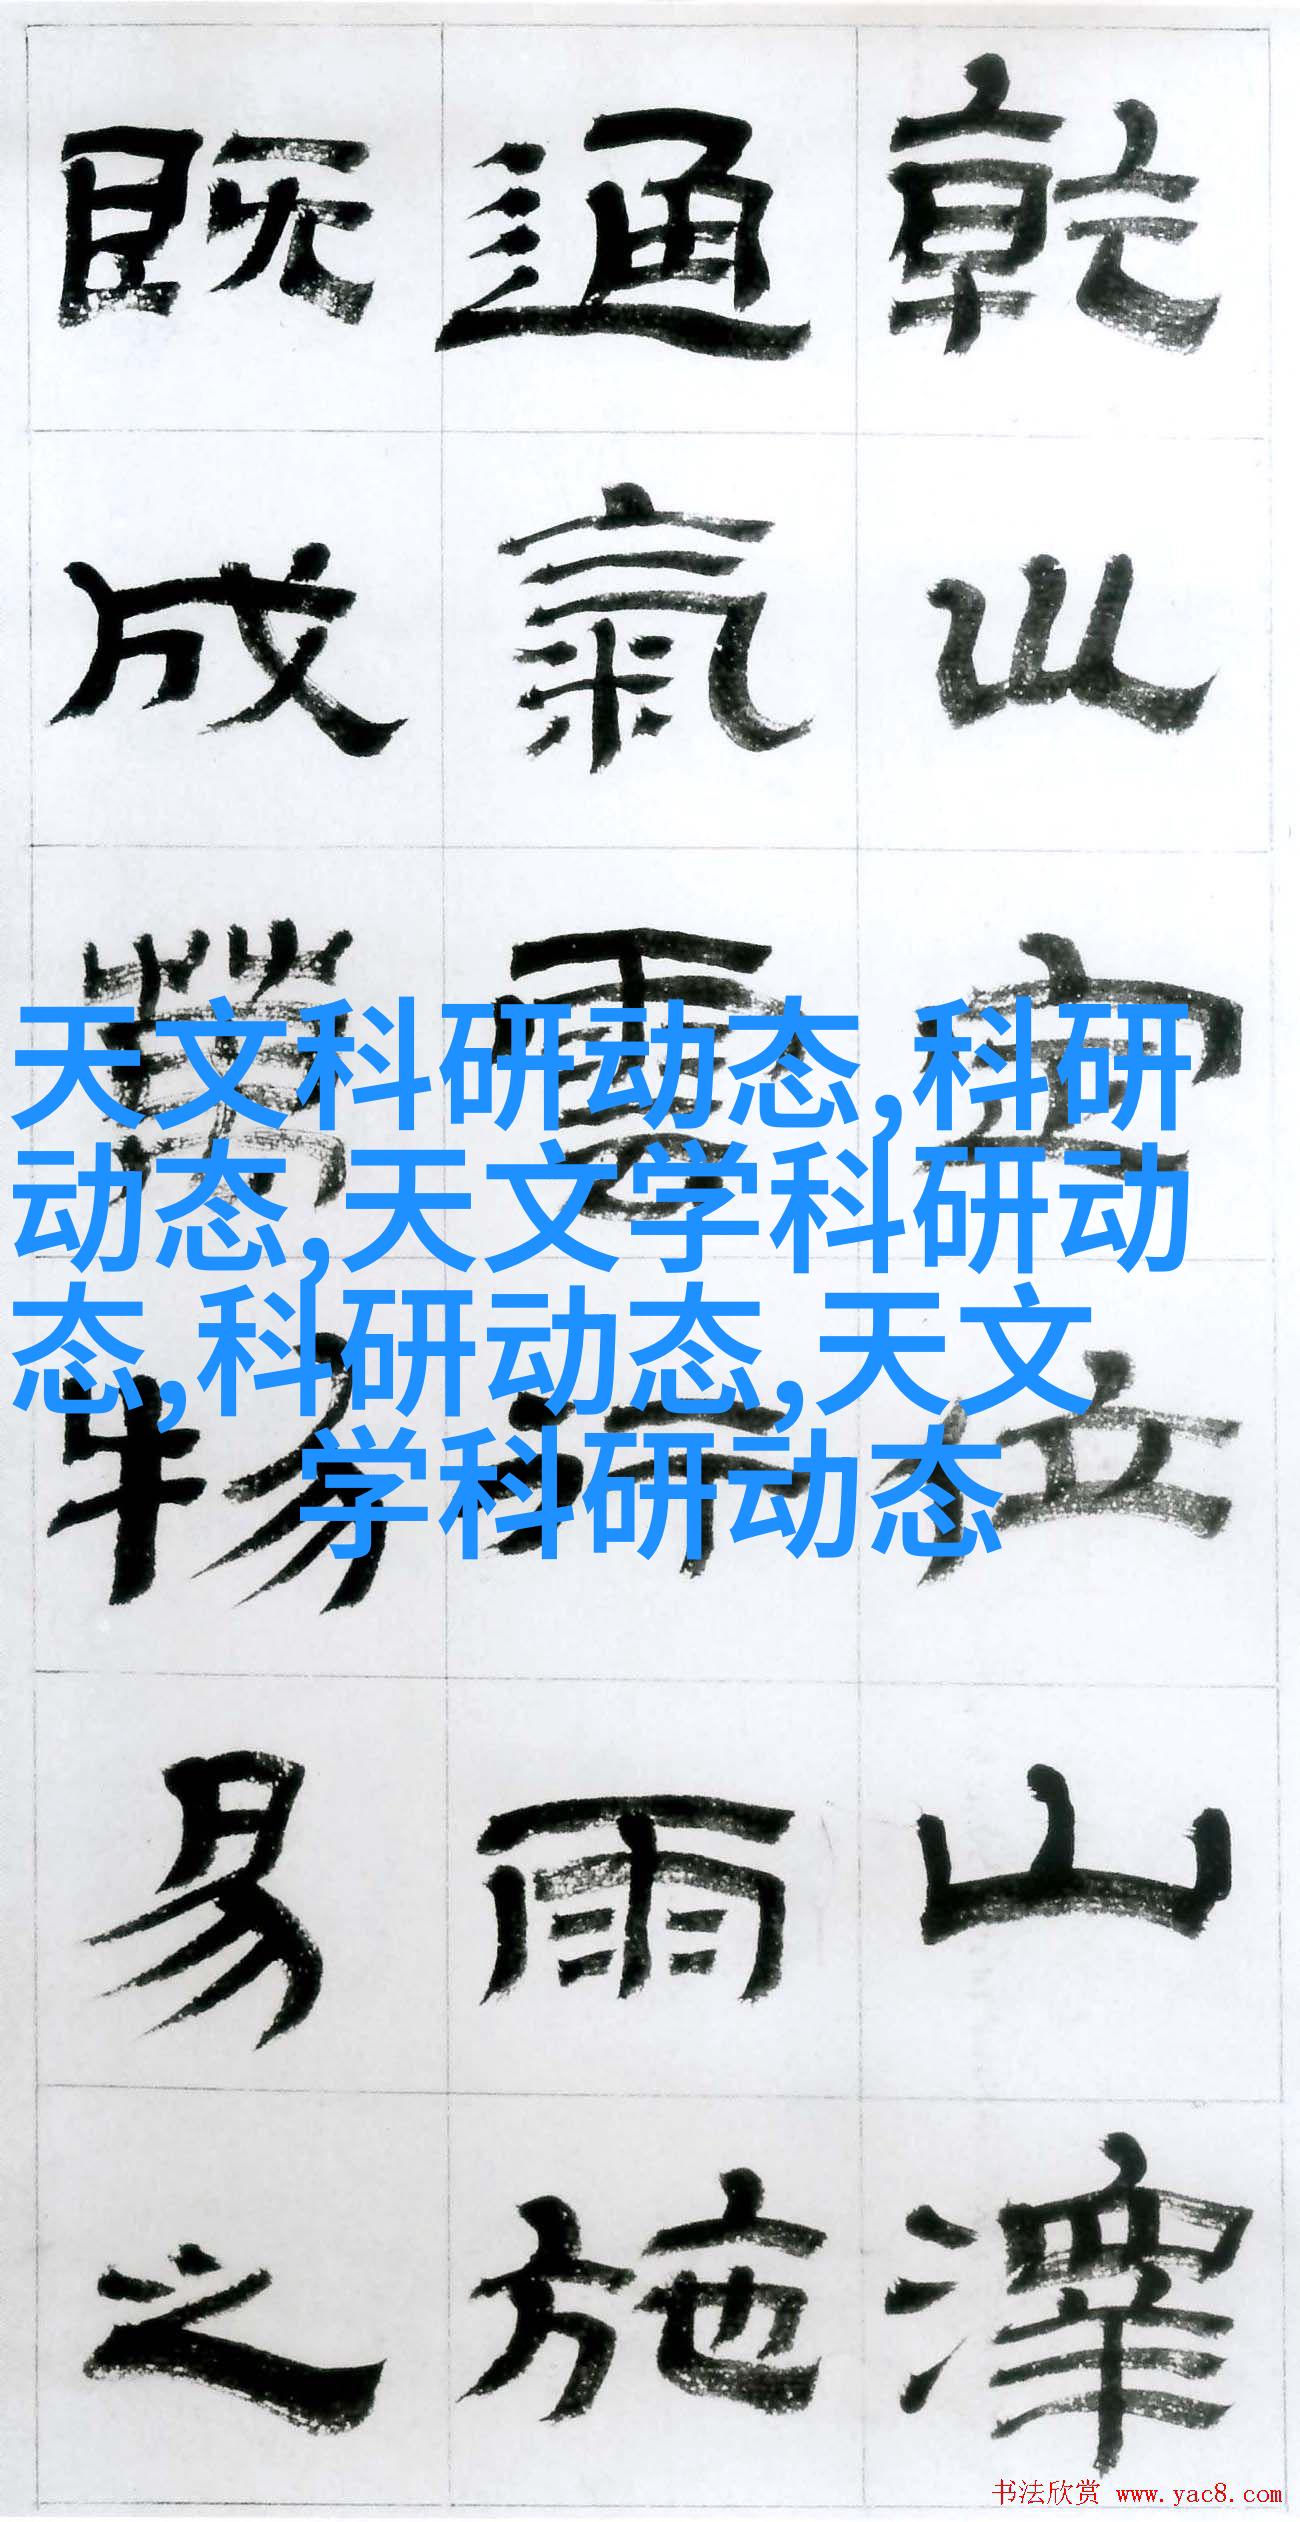 乾坤定位山澤
通氣雲行雨施
既成萬物易之
天文科研动态,科研
动态,天文学科研动
态,科研动态,天文
学科研动态
书法欣赏 www.yac8.com